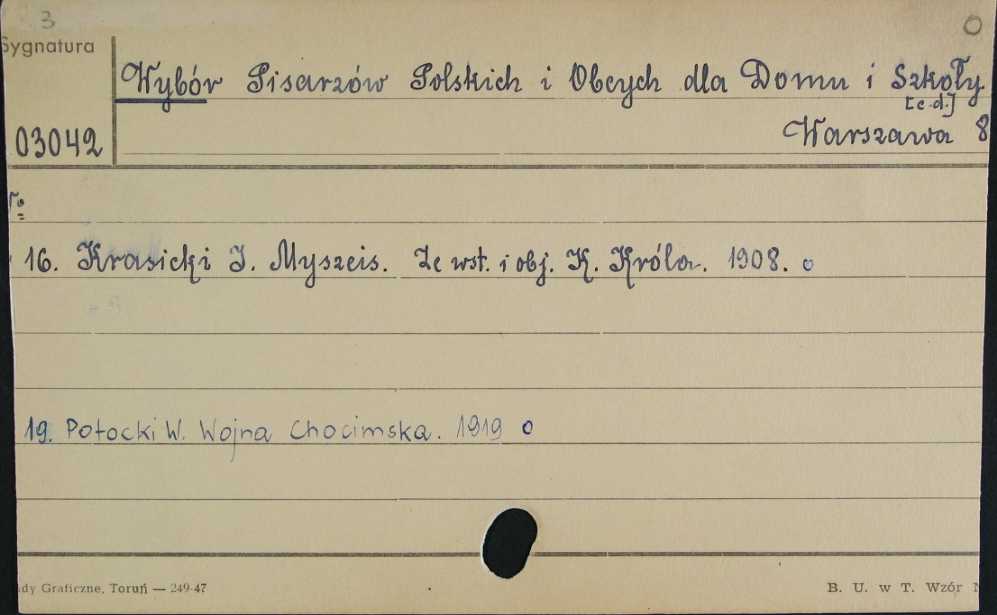 3 0
Sygnatura
Wybór Pisarzów Polskich i Obcych dla Domu i Szkoły
[c.d.]
03042 Warszawa 8
16. Krasicki I. Myszeis. Ze wst. i obj. K. Króla. 1908. o
19. Potocki W. Wojna Chocimska. 1919 o
dy Graficzne, Toruń — 249-47 B. U. w T. Wzór